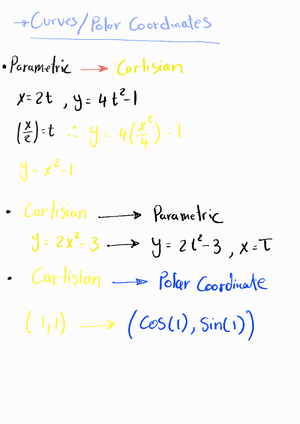 → Curves/Polar Coordinates
• Parametric → Cartisian
x=2t , y=4t²-1
(x/2)=t ∴ y=4(x²/4)-1
y=x²-1
• Cartisian → Parametric
y=2x²-3 → y=2t²-3 , x=T
• Cartisian → Polar Coordinate
(1,1) → (cos(1), sin(1))